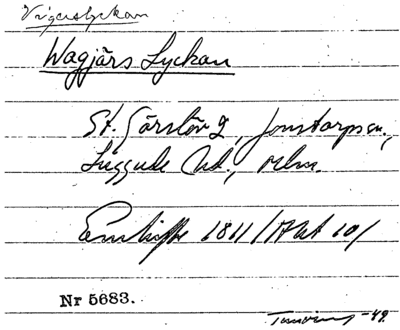 Vigerslyckan
Wagjärs Lyckan
St. Görslöv 2, Jonstorps sn.,
Luggude hd., Mlm.
Enskifte 1811 /Akt 10/
Nr 5683.
-49.